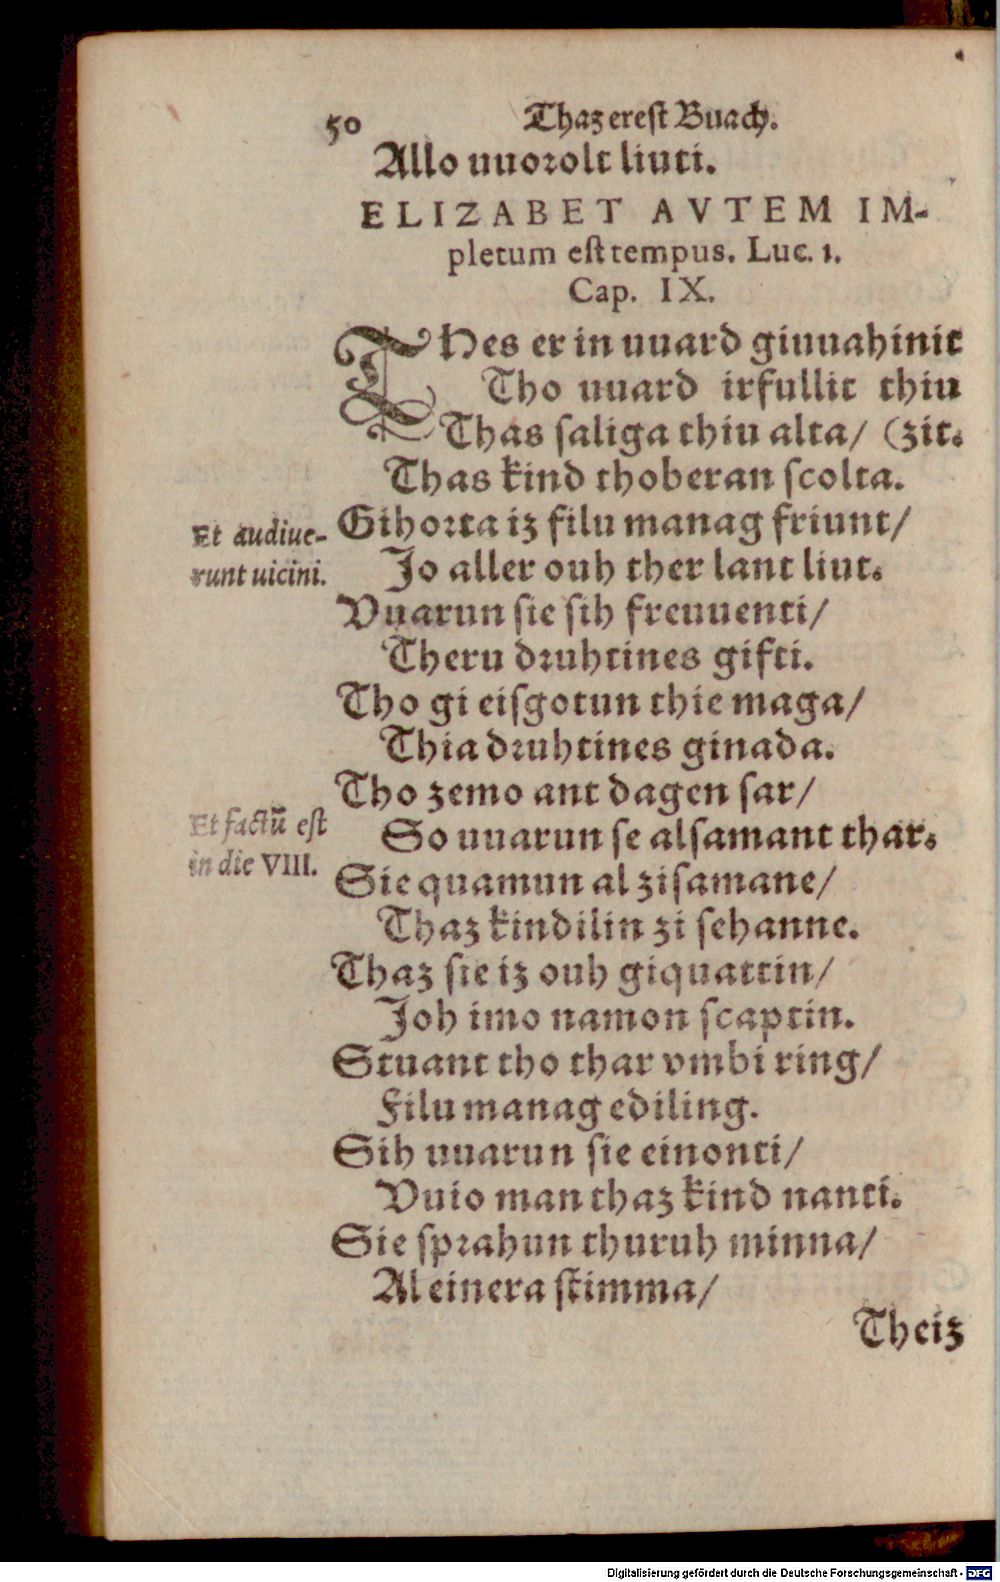 50 Thaz erest Buach.
Allo uuorolt liuti.
ELIZABET AVTEM IM-
pletum est tempus. Luc. 1.
Cap. IX.
THes er in uuard giuuahinit
Tho uuard irfullit thiu
Thas saliga thiu alta/ (zit.
Thas kind thoberan scolta.
Et audiue-
runt uicini.
Gihorta iz filu manag friunt/
Jo aller ouh ther lant liut.
Vuarun sie sih freuuenti/
Theru druhtines gifti.
Tho gi eisgotun thie maga/
Thia druhtines ginada.
Et factū est
in die VIII.
Tho zemo ant dagen sar/
So uuarun se alsamant thar.
Sie quamun al zisamane/
Thaz kindilin zi sehanne.
Thaz sie iz ouh giquattin/
Joh imo namon scaptin.
Stuant tho thar vmbi ring/
Filu manag ediling.
Sih uuarun sie einonti/
Vuio man thaz kind nanti.
Sie sprahun thuruh minna/
Al einera stimma/
Theiz
Digitalisierung gefördert durch die Deutsche Forschungsgemeinschaft - DFG